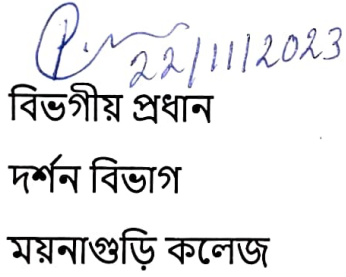 22/11/2023
বিভগীয় প্রধান
দর্শন বিভাগ
ময়নাগুড়ি কলেজ